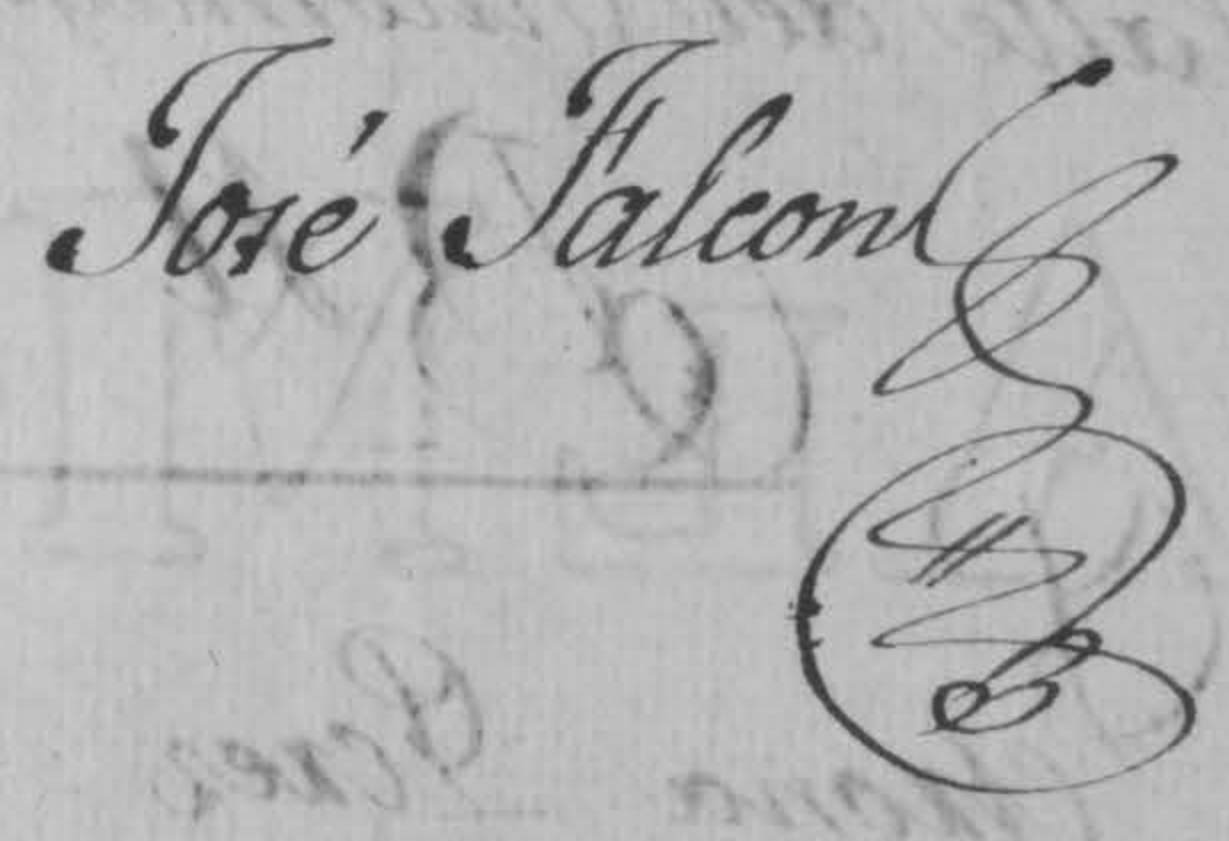 José Falcon